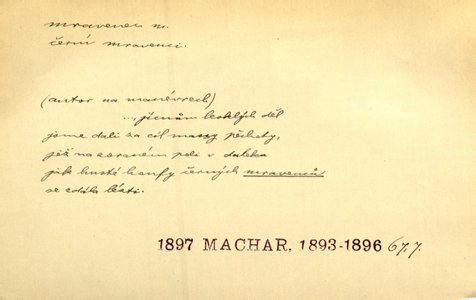 mravenec m.
černí mravenci.
(autor na manévrech)
... jícnům lesklých děl
jsme dali za cíl massy pěchoty,
jež na zoraném poli v dálce
jak husté houfy černých mravenců
se zdála lézti.
1897 MACHAR, 1893-1896 67, 7.